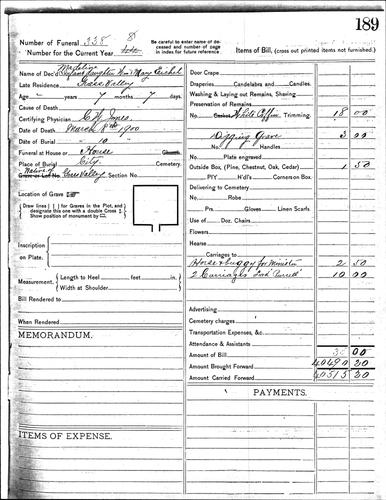 189
Number of Funeral 338
Number for the Current Year
8
Be careful to enter name of deceased and number of page in index for future reference.
Name of Dec'd Madeline Infant daughter Wm & May Eichel
Late Residence Grass Valley
Age - years 7 months 7 days.
Cause of Death
Certifying Physician C W Jones
Date of Death March 8th 1900
Date of Burial " 10 "
Funeral at House or House Church
Place of Burial City Cemetery.
Native of Grass Valley Section No.
Location of Grave
Draw lines | | for Graves in the Plot, and designate this one with a double Cross
Show position of monument by
Inscription on Plate.
Measurement. Length to Heel feet in.
Width at Shoulder
Bill Rendered to
When Rendered
MEMORANDUM.
ITEMS OF EXPENSE.
Items of Bill, (cross out printed items not furnished.)
Door Crape
Draperies Candelabra and Candles
Washing & Laying out Remains, Shaving
Preservation of Remains
No. Casket White Coffin Trimming. 18 00
Digging Grave 3 00
No. Handles
Plate engraved
Outside Box, (Pine, Chestnut, Oak, Cedar) 1 50
P'l'Y H'd'l's Corners on Box.
Delivering to Cemetery
No. Robe
Prs. Gloves Linen Scarfs
Use of Doz. Chairs
Flowers
Hearse
Carriages to
Horse & buggy for Minister 2 50
2 Carriages 10 00
Advertising
Cemetery charges
Transportation Expenses, &c.
Attendance & Assistants
Amount of Bill 35 00
Amount Brought Forward 40490 20
Amount Carried Forward 40515 20
PAYMENTS.